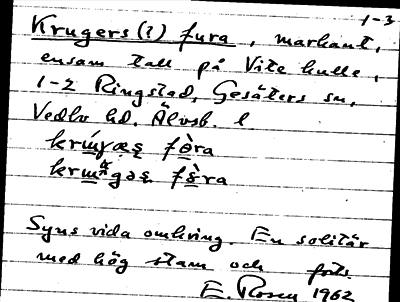 1-3
Krugers (?) fura, markant,
ensam tall på Vite kulle,
1-2 Ringstad, Gesäters sn,
Vedbo hd. Älvsb. l
Syns vida omkring. En solitär
med hög stam och forts.
E. Rosen 1962